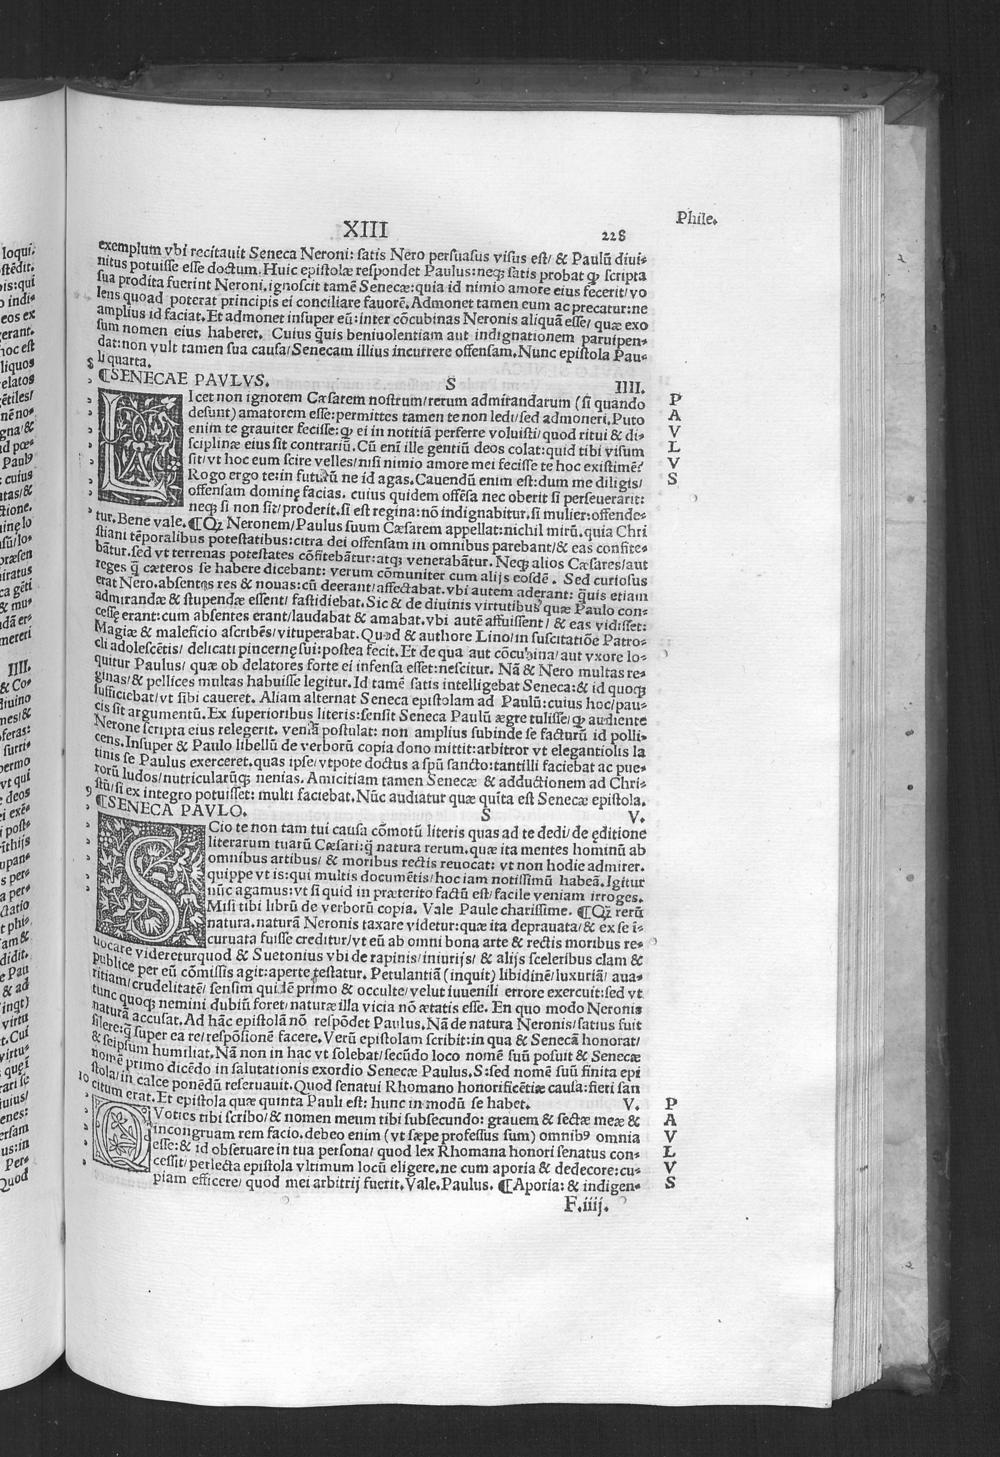 Phile.
XIII 228
exemplum vbi recitauit Seneca Neroni: satis Nero persuasus visus est/ & Paulū diui-
nitus potuisse esse doctum. Huic epistolæ respondet Paulus: neqꝫ satis probat qꝫ scripta
sua prodita fuerint Neroni. ignoscit tamē Senecæ: quia id nimio amore eius fecerit/ vo
lens quoad poterat principis ei conciliare fauorē. Admonet tamen eum ac precatur: ne
amplius id faciat. Et admonet insuper eū: inter cōcubinas Neronis aliquā esse/ quæ exo
sum nomen eius haberet. Cuius q̄uis beniuolentiam aut indignationem paruipen-
dat: non vult tamen sua causa/ Senecam illius incurrere offensam. Nunc epistola Pau-
li quarta.
¶SENECAE PAVLVS. S IIII.
LIcet non ignorem Cæsarem nostrum/ rerum admirandarum (si quando
desunt) amatorem esse: permittes tamen te non ledi/ sed admoneri. Puto
enim te grauiter fecisse: qꝫ ei in notitiā perferre voluisti/ quod ritui & di-
sciplinæ eius sit contrariū. Cū enī ille gentiū deos colat: quid tibi visum
sit/ vt hoc eum scire velles/ nisi nimio amore mei fecisse te hoc existimē?
Rogo ergo te: in futurū ne id agas. Cauendū enim est: dum me diligis/
offensam dominę facias. cuius quidem offēsa nec oberit si perseuerarit:
neqꝫ si non sit/ proderit. si est regina: nō indignabitur. si mulier: offende-
tur. Bene vale. ¶Qꝫ Neronem/ Paulus suum Cæsarem appellat: nichil mirū. quia Chri
stiani tēporalibus potestatibus: citra dei offensam in omnibus parebant/ & eas confite-
bātur. sed vt terrenas potestates cōfitebātur: atqꝫ venerabātur. Neqꝫ alios Cæsares/ aut
reges q̄ cæteros se habere dicebant: verum cōmuniter cum alijs eosdē. Sed curiosus
erat Nero. absentes res & nouas: cū deerant/ affectabat. vbi autem aderant: q̄uis etiam
admirandæ & stupendæ essent/ fastidiebat. Sic & de diuinis virtutibus quæ Paulo con-
cessę erant: cum absentes erant/ laudabat & amabat. vbi autē affuissent/ & eas vidisset:
Magiæ & maleficio ascribēs/ vituperabat. Quod & authore Lino/ in suscitatiōe Patro-
cli adolescētis/ delicati pincernę sui: postea fecit. Et de qua aut cōcubina/ aut vxore lo-
quitur Paulus/ quæ ob delatores forte ei infensa esset: nescitur. Nā & Nero multas re-
ginas/ & pellices multas habuisse legitur. Id tamē satis intelligebat Seneca: & id quoqꝫ
sufficiebat/ vt sibi caueret. Aliam alternat Seneca epistolam ad Paulū: cuius hoc/ pau-
cis sit argumentū. Ex superioribus literis: sensit Seneca Paulū ægre tulisse/ qꝫ audiente
Nerone scripta eius relegerit. veniā postulat: non amplius subinde se facturū id polli-
cens. Insuper & Paulo libellū de verborū copia dono mittit: arbitror vt elegantiolis la
tinis se Paulus exerceret. quas ipse/ vtpote doctus a spū sancto: tantilli faciebat ac pue-
rorū ludos/ nutricularūqꝫ nenias. Amicitiam tamen Senecæ & adductionem ad Chri-
stū/ si ex integro potuisset: multi faciebat. Nūc audiatur quæ quīta est Senecæ epistola.
¶SENECA PAVLO. S V.
SCio te non tam tui causa cōmotū literis quas ad te dedi/ de ęditione
literarum tuarū Cæsari: q̄ natura rerum. quæ ita mentes hominū ab
omnibus artibus/ & moribus rectis reuocat: vt non hodie admirer.
quippe vt is: qui multis documētis/ hoc iam notissimū habeā. Igitur
nūc agamus: vt si quid in præterito factū est/ facile veniam irroges.
Misi tibi librū de verborū copia. Vale Paule charissime. ¶Qꝫ rerū
natura. naturā Neronis taxare videtur: quæ ita deprauata/ & ex se i-
curuata fuisse creditur/ vt eū ab omni bona arte & rectis moribus re-
uocare videretur quod & Suetonius vbi de rapinis/ iniurijs/ & alijs sceleribus clam &
publice per eū cōmissis agit: aperte testatur. Petulantiā (inquit) libidinē/ luxuriā/ aua-
ritiam/ crudelitatē/ sensim quidē primo & occulte/ velut iuuenili errore exercuit: sed vt
tunc quoqꝫ nemini dubiū foret/ naturæ illa vicia nō ætatis esse. En quo modo Neronis
naturā accusat. Ad hāc epistolā nō respōdet Paulus. Nā de natura Neronis/ satius fuit
silere: q̄ super ea re/ respōsionē facere. Verū epistolam scribit: in qua & Senecā honorat/
& seipsum humiliat. Nā non in hac vt solebat/ secūdo loco nomē suū posuit & Senecæ
nomē primo dicēdo in salutationis exordio Senecæ Paulus. S: sed nomē suū finita epi
stola/ in calce ponēdū reseruauit. Quod senatui Rhomano honorificētiæ causa: fieri san
citum erat. Et epistola quæ quinta Pauli est: hunc in modū se habet. V.
QVoties tibi scribo/ & nomen meum tibi subsecundo: grauem & sectæ meæ &
incongruam rem facio. debeo enim (vt sæpe professus sum) omnibꝰ omnia
esse: & id obseruare in tua persona/ quod lex Rhomana honori senatus con-
cessit/ perlecta epistola vltimum locū eligere. ne cum aporia & dedecore: cu-
piam efficere/ quod mei arbitrij fuerit. Vale. Paulus. ¶Aporia: & indigen-
F.iiij.
P
A
V
L
V
S
P
A
V
L
V
S
8
9
10